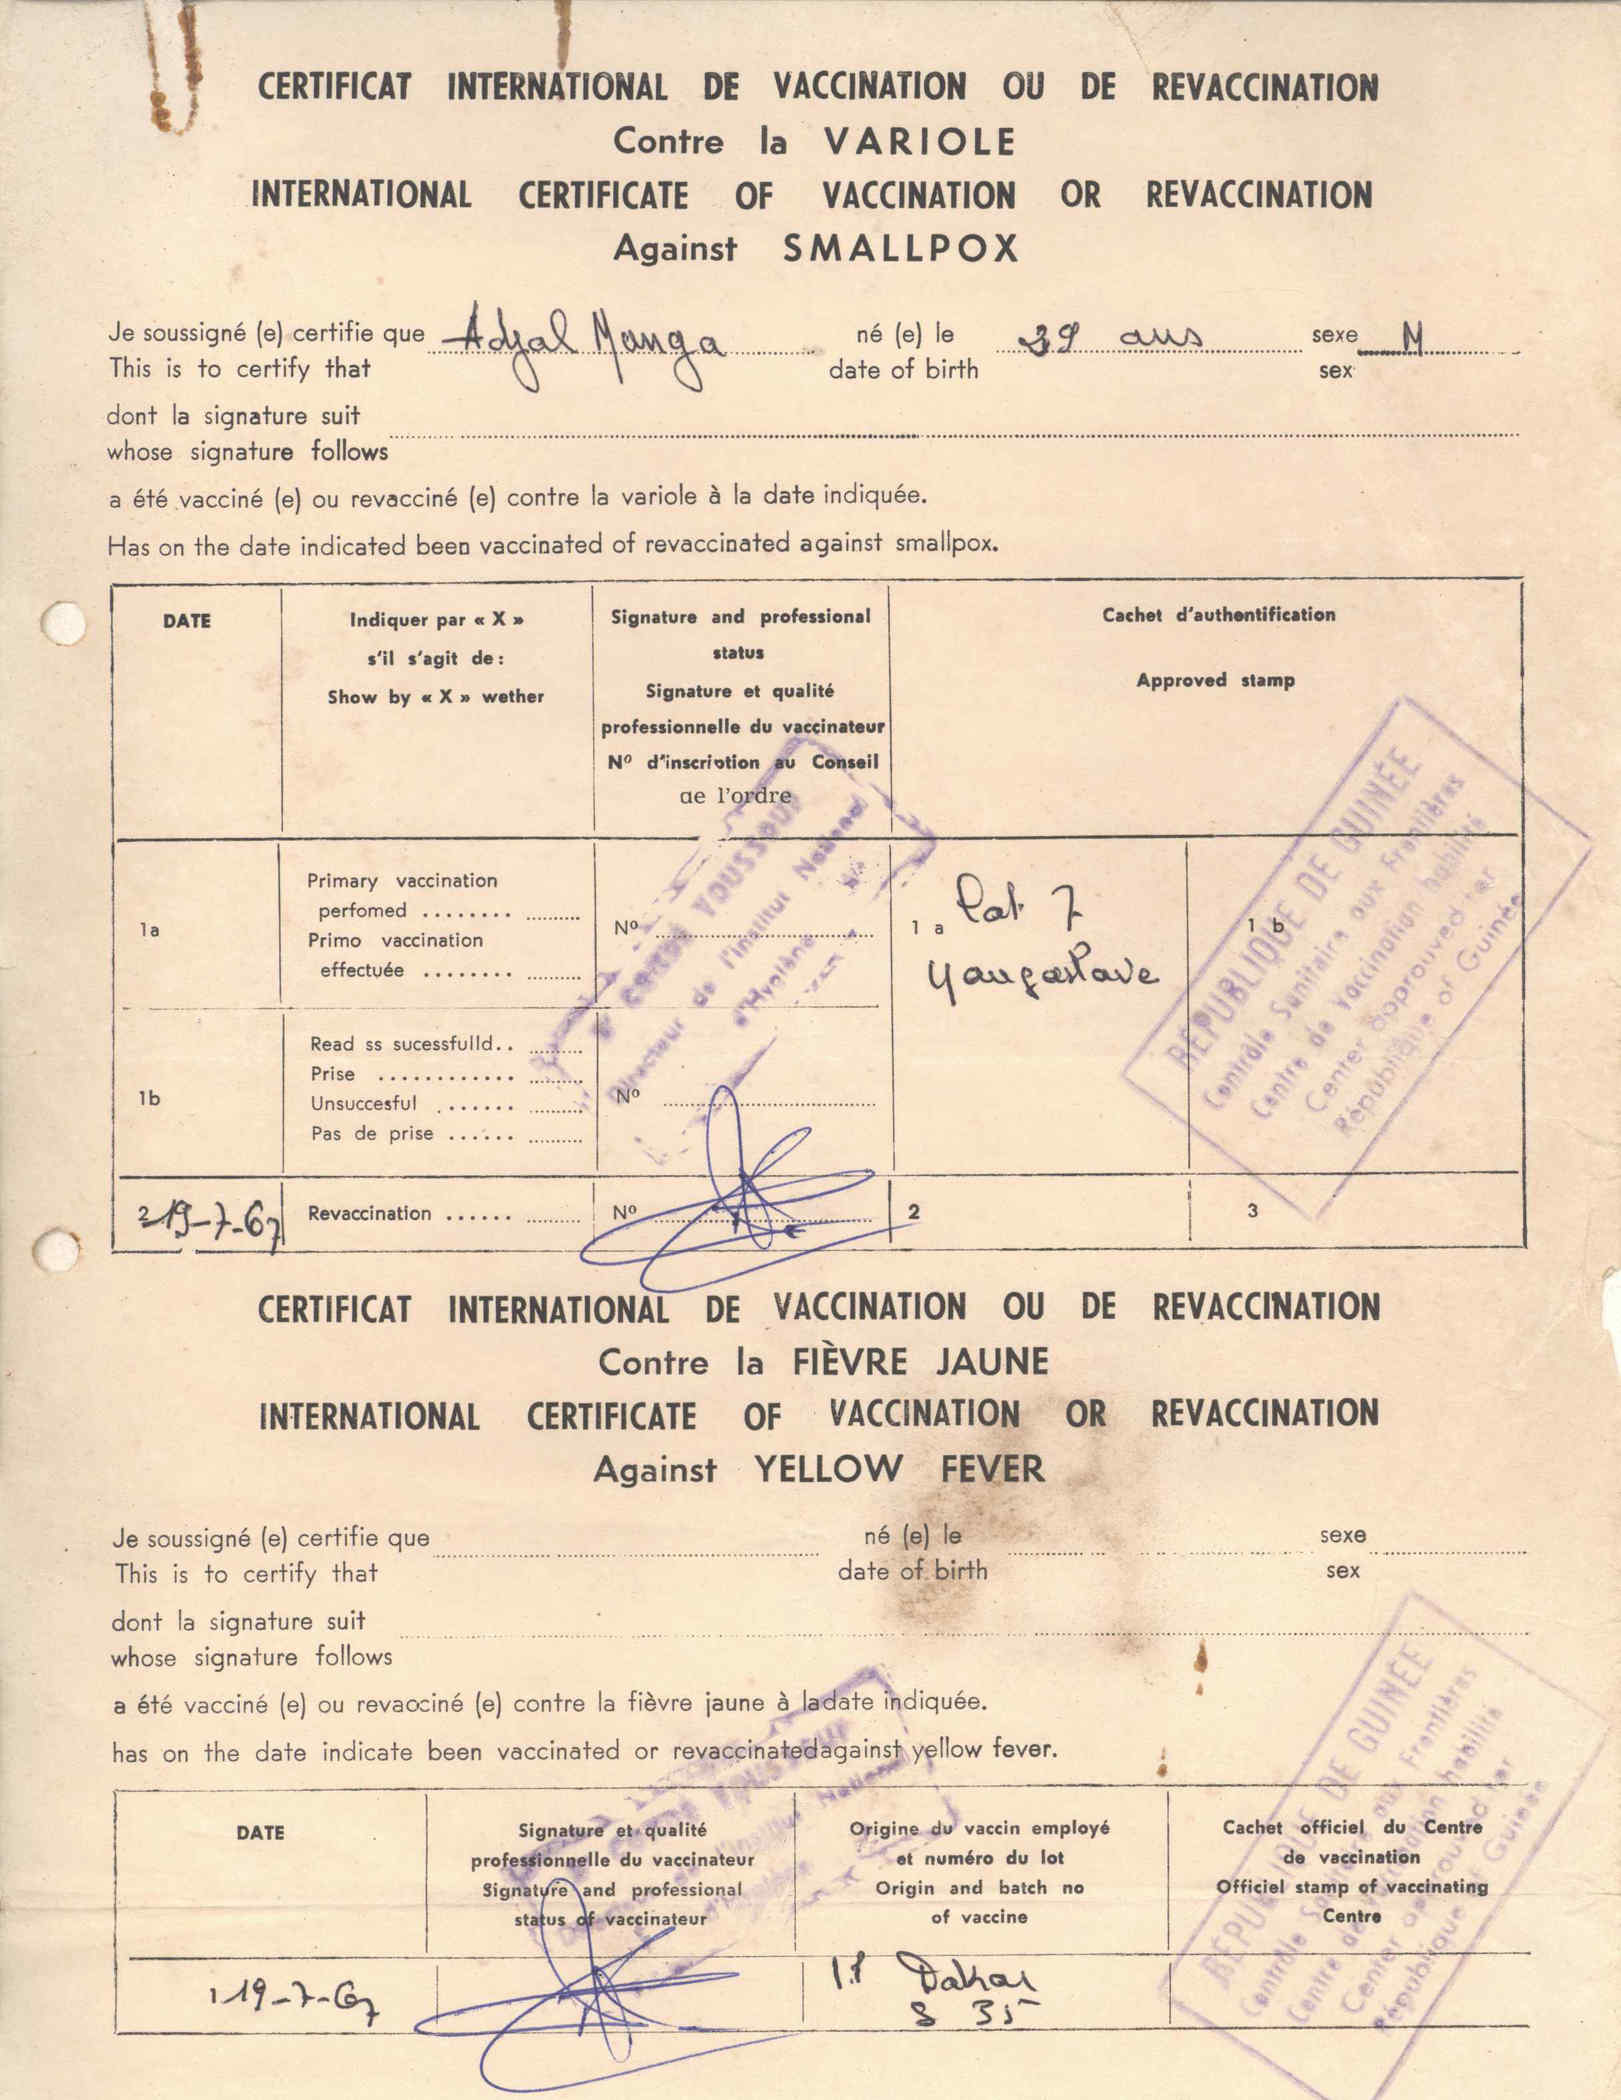 CERTIFICAT INTERNATIONAL DE VACCINATION OU DE REVACCINATION
Contre la VARIOLE
INTERNATIONAL CERTIFICATE OF VACCINATION OR REVACCINATION
Against SMALLPOX
Je soussigné (e) certifie que Adjal Manga né (e) le 39 ans sexe M
This is to certify that date of birth sex
dont la signature suit
whose signature follows
a été vacciné (e) ou revacciné (e) contre la variole à la date indiquée.
Has on the date indicated been vaccinated of revaccinated against smallpox.
DATE
Indiquer par « X »
s'il s'agit de :
Show by « X » wether
Signature and professional
status
Signature et qualité
professionnelle du vaccinateur
Nº d'inscription au Conseil
de l'ordre
Cachet d'authentification
Approved stamp
1a
Primary vaccination
perfomed ........
Primo vaccination
effectuée ........
Nº
1 a
Lot 7
1 b
1b
Read ss sucessfulld..
Prise ............
Unsuccesful .......
Pas de prise ......
Nº
2 19-7-67
Revaccination ......
Nº
2
3
YOUSSOUF
Directeur de l'Institut National
d'Hygiène
RÉPUBLIQUE DE GUINÉE
Contrôle Sanitaire aux Frontières
Centre de Vaccination habilité
Center approuved
République of Guinée
CERTIFICAT INTERNATIONAL DE VACCINATION OU DE REVACCINATION
Contre la FIÈVRE JAUNE
INTERNATIONAL CERTIFICATE OF VACCINATION OR REVACCINATION
Against YELLOW FEVER
Je soussigné (e) certifie que né (e) le sexe
This is to certify that date of birth sex
dont la signature suit
whose signature follows
a été vacciné (e) ou revacciné (e) contre la fièvre jaune à ladate indiquée.
has on the date indicate been vaccinated or revaccinatedagainst yellow fever.
DATE
Signature et qualité
professionnelle du vaccinateur
Signature and professional
status of vaccinateur
Origine du vaccin employé
et numéro du lot
Origin and batch no
of vaccine
Cachet officiel du Centre
de vaccination
Officiel stamp of vaccinating
Centre
1 19-7-67
Dakar
S 35
RÉPUBLIQUE DE GUINÉE
Contrôle Sanitaire aux Frontières
Centre de Vaccination habilité
Center approuved
République of Guinée